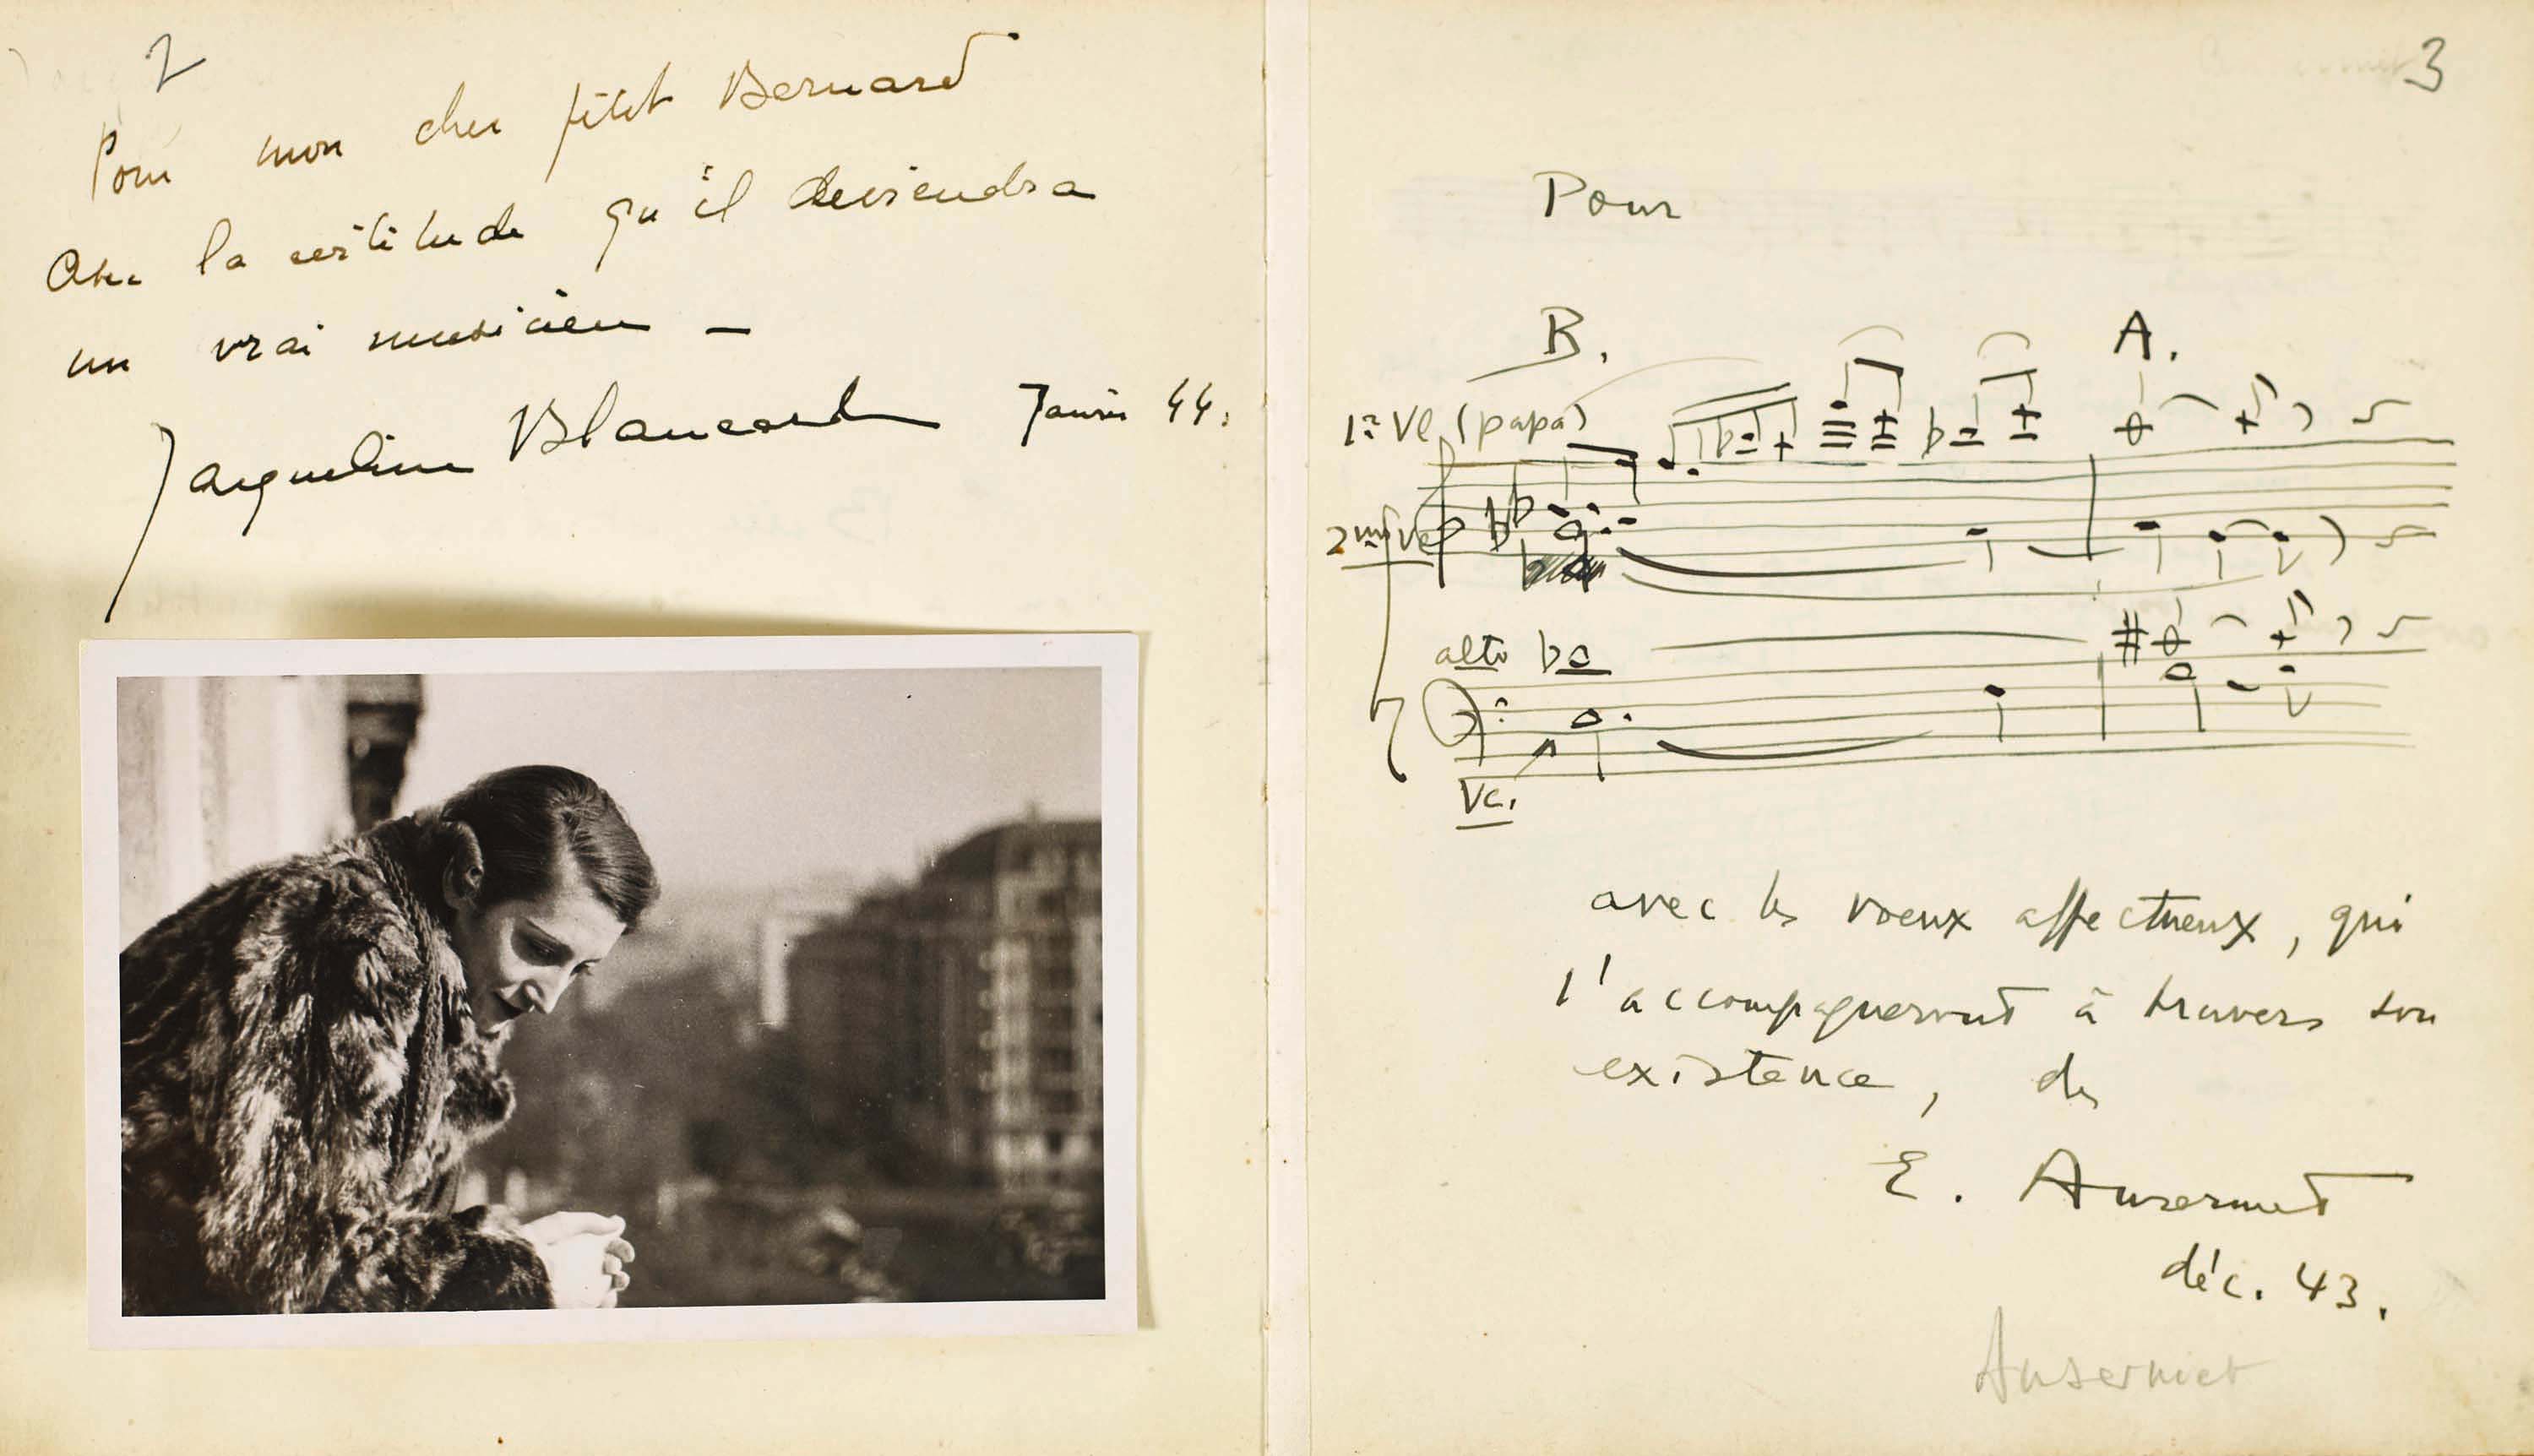 2
Pour mon cher petit Bernard
Avec la certitude qu'il deviendra
un vrai musicien –
Jacqueline Blancard Janvier 44.
3
Pour
B. A.
1er Vl (papa)
2me Vl
alto
Vc.
avec les voeux affectueux, qui
l'accompagneront à travers son
existence, de
E. Ansermet
déc. 43.
Ansermet